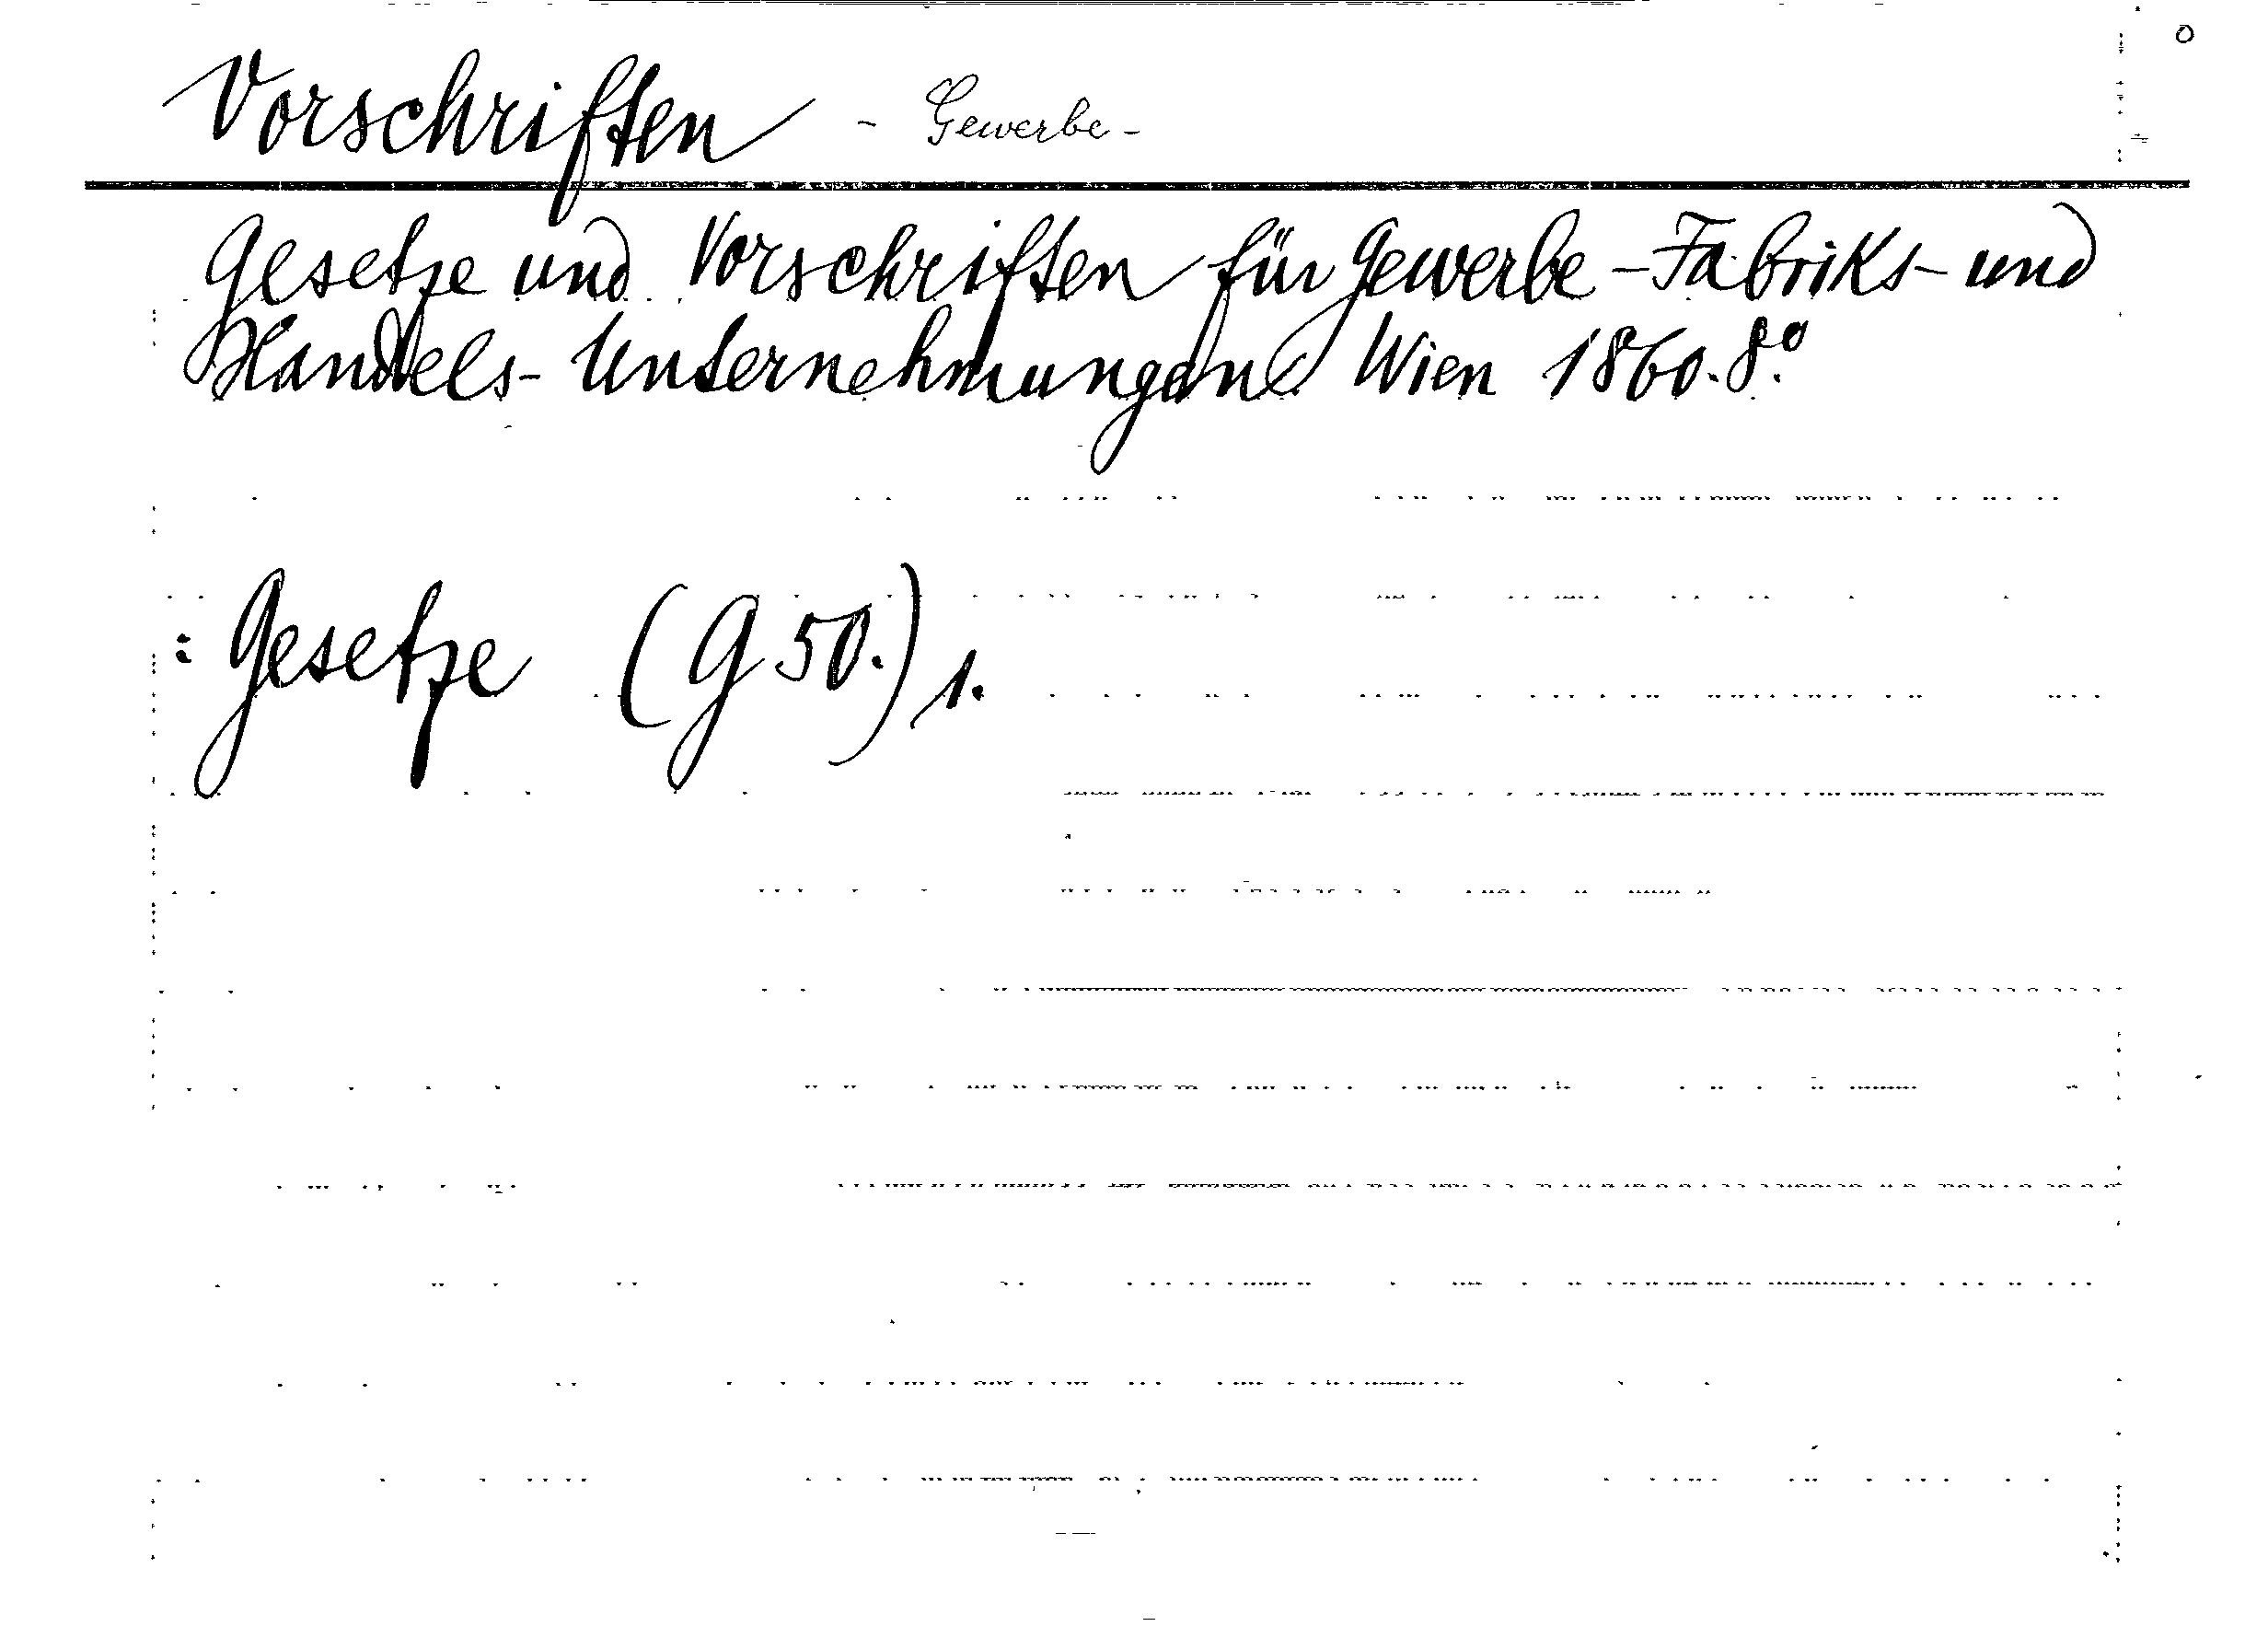 Vorschriften - Gewerbe -
Gesetze und Vorschriften für Gewerbe-Fabriks- und
Handels-Unternehmungen. Wien 1860. 8.°
: Gesetze (G 50.) 1.